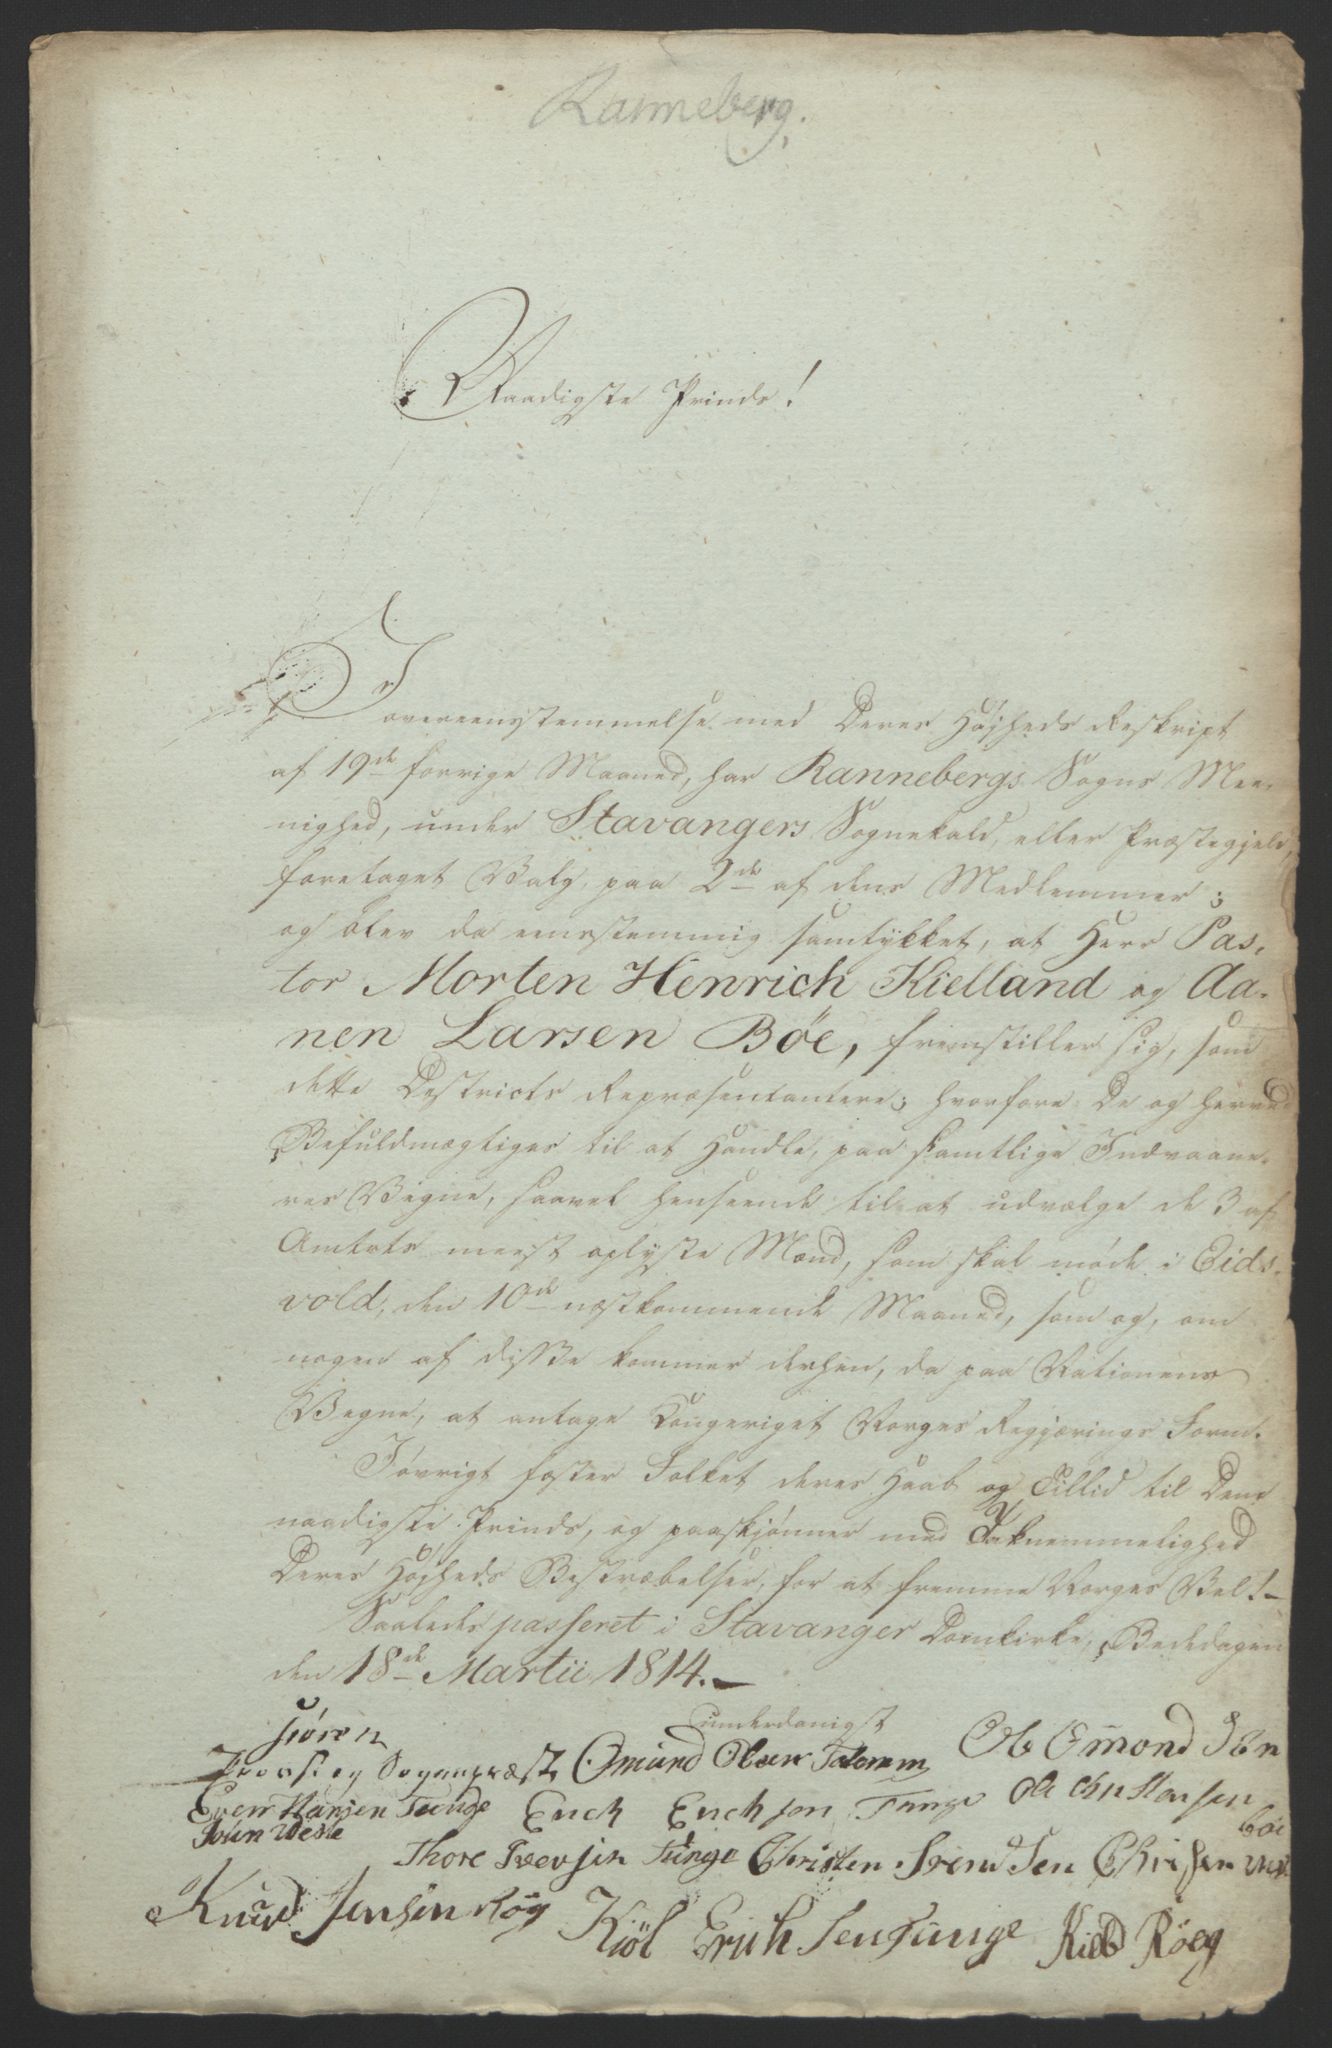 Ranneberg.
Naadigste Prinds!
I
overeenstemmelse med Deres Højheds Reskript
af 19de forrige Maaned, har Rannebergs Sogns Mee-
nighed, under Stavangers Sognekald, eller Præstegjeld,
foretaget Valg, paa 2de af dens Medlemmer;
og blev da eenstemmig samtykket, at Herr Pas-
tor Morten Henrich Kielland og Aa-
nen Larsen Bøe, fremstiller sig, som
dette Destricts Repræsentantere; hvorfore De og herved
Befuldmægtiges til at Handle, paa samtlige Indvaane-
res Vegne, saavel henseende til at udvælge de 3 af
Amtets meest oplyste Mænd, som skal møde i Eids-
vold, den 10de næstkommende Maaned, som og, om
nogen af disse kommer derhen, da paa Nationens
Vegne, at antage Kongeriget Norges Regjærings Form.
Iøvrigt fæster Folket deres Haab og Tillid til Den
naadigste Prinds, og paaskjønner med Taknemmelighed
Deres Højheds Bestræbelser, for at fremme Norges Vel!-
Saaledes passeret i Stavanger Domkirke, Bededagen
den 18de Martii 1814.-
underdanigst
Søren
Provst og Sognepræst Omund Olsen Ole Omond Sen
Even Hansen Tunge Erich Erichson Tunge Ole Christensen
Bøe
Thore Tunge Christen Svend Sen Christen
Knud Jensen Røg Kiøl Erich Sen Tunge Kield Røeg